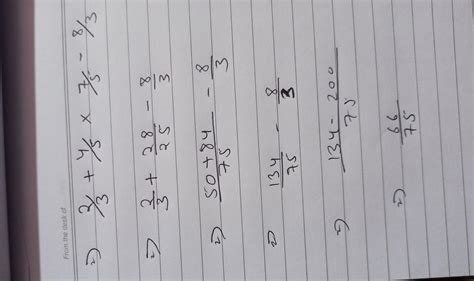 From the desk of
=) 2/3 + 4/5 × 7/5 - 8/3
=) 2/3 + 28/25 - 8/3
=) 50+84/75 - 8/3
=) 134/75 - 8/3
=) 134-200/75
=) 66/75